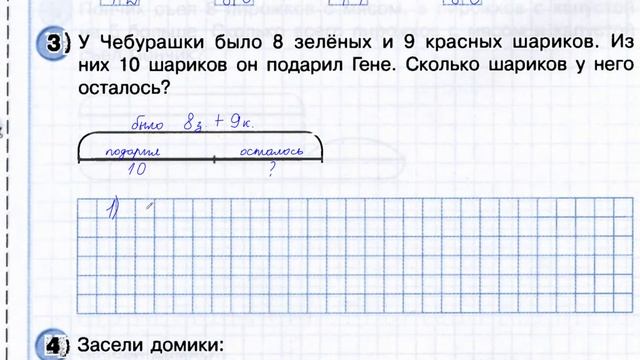 3) У Чебурашки было 8 зелёных и 9 красных шариков. Из
них 10 шариков он подарил Гене. Сколько шариков у него
осталось?
было 8з + 9к.
подарил осталось
10 ?
1)
4) Засели домики: